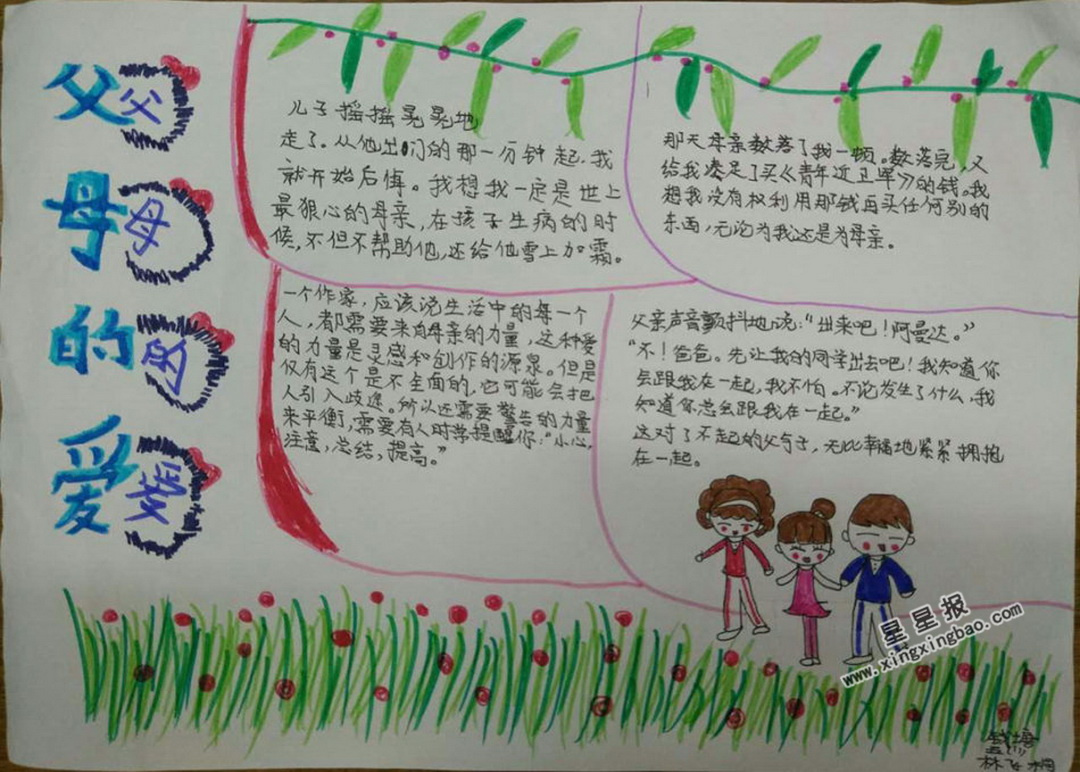 父
母
的
爱
父
母
的
爱
儿子摇摇晃晃地
走了。从他出门的那一分钟起，我
就开始后悔。我想我一定是世上
最狠心的母亲，在孩子生病的时
候，不但不帮助他，还给他雪上加霜。
那天母亲数落了我一顿。数落完，又
给我凑足了买《青年近卫军》的钱。我
想我没有权利用那钱再买任何别的
东西，无论为我还是为母亲。
一个作家，应该说生活中的每一个
人，都需要来自母亲的力量，这种爱
的力量是灵感和创作的源泉。但是
仅有这个是不全面的，它可能会把
人引入歧途。所以还需要警告的力量
来平衡，需要有人时常提醒你：“小心，
注意，总结，提高。”
父亲声音颤抖地说：“出来吧！阿曼达。”
“不！爸爸。先让我的同学出去吧！我知道你
会跟我在一起，我不怕。不论发生了什么，我
知道你总会跟我在一起。”
这对了不起的父与子，无比幸福地紧紧拥抱
在一起。
星星报
www.xingxingbao.com
林飞桐